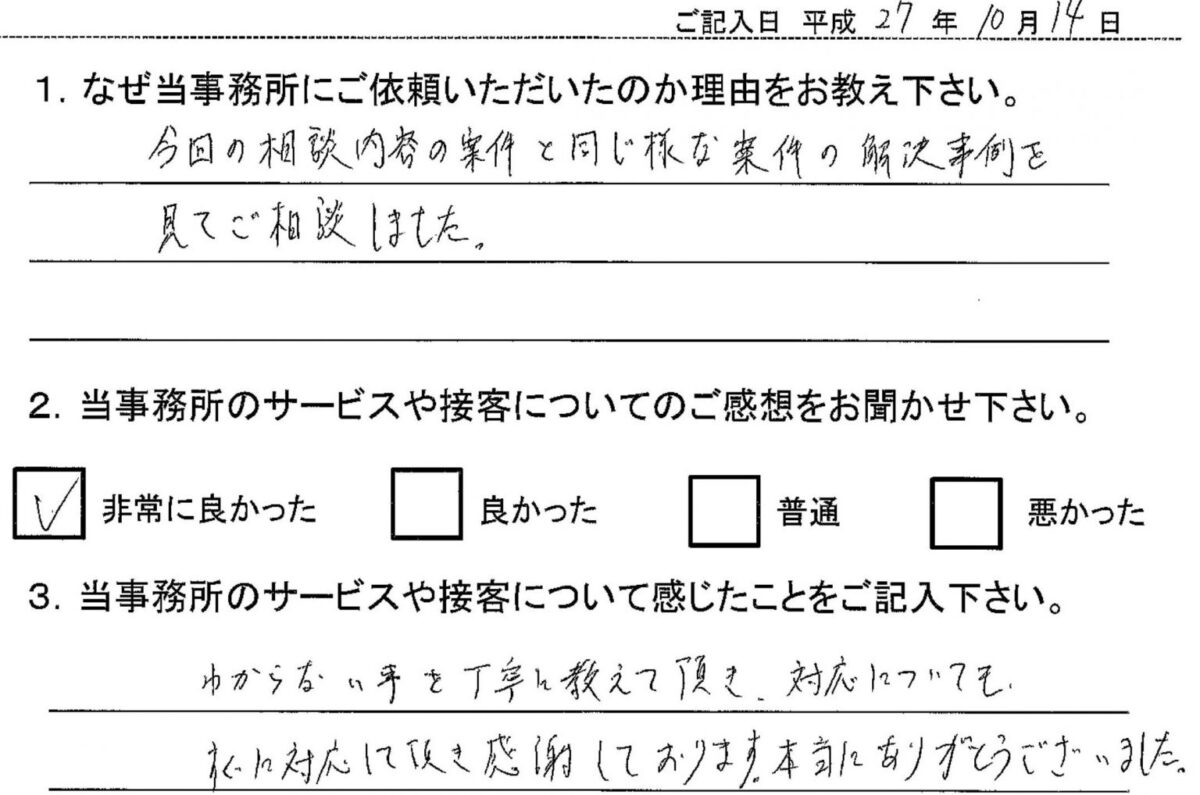 ご記入日 平成 27 年 10 月 14 日
1. なぜ当事務所にご依頼いただいたのか理由をお教え下さい。
今回の相談内容の案件と同じ様な案件の解決事例を
見てご相談しました。
2. 当事務所のサービスや接客についてのご感想をお聞かせ下さい。
非常に良かった 良かった 普通 悪かった
3. 当事務所のサービスや接客について感じたことをご記入下さい。
わからない事を丁寧に教えて頂き、対応についても、
すぐに対応して頂き感謝しております。本当にありがとうございました。